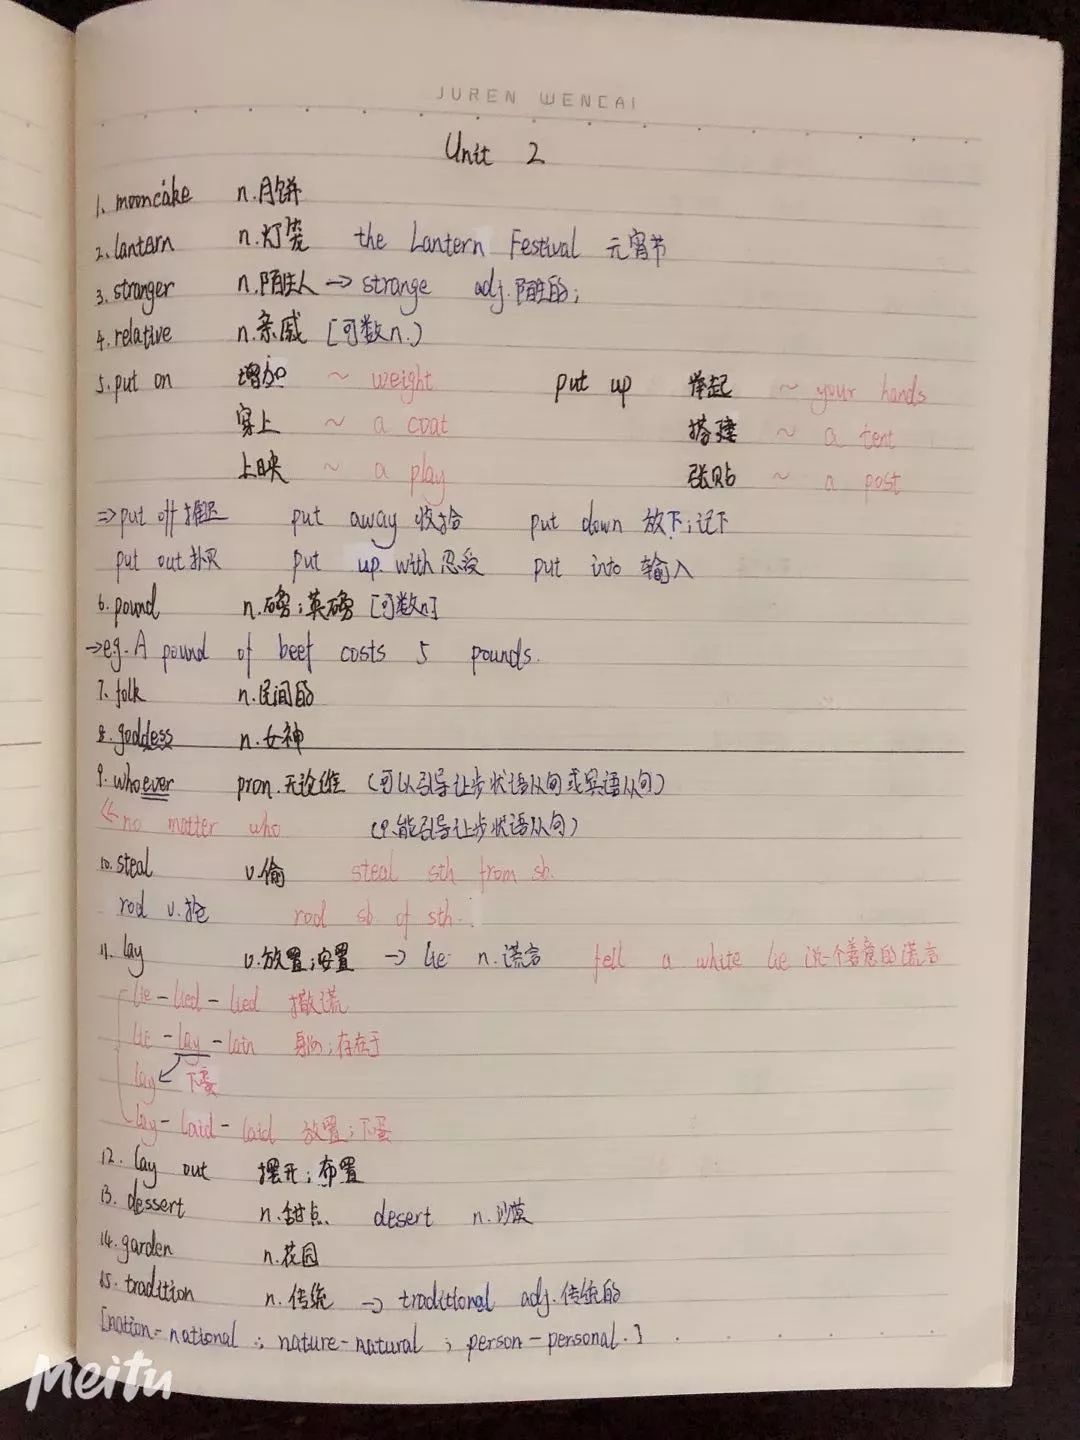 JUREN WENCAI
Unit 2
1. mooncake n.月饼
2. lantern n.灯笼 the Lantern Festival 元宵节
3. stranger n.陌生人 → strange adj.陌生的;
4. relative n.亲戚 [可数n.)
5. put on 增加 ~ weight put up 举起 ~ your hands
穿上 ~ a coat 搭建 ~ a tent
上映 ~ a play 张贴 ~ a post
⇒put off 推迟 put away 收拾 put down 放下;记下
put out 扑灭 put up with 忍受 put into 输入
6. pound n.磅;英磅 [可数n]
→e.g. A pound of beef costs 5 pounds.
7. folk n.民间的
8. goddess n.女神
9. whoever pron.无论谁 (可以引导让步状语从句或宾语从句)
no matter who (只能引导让步状语从句)
10. steal v.偷 steal sth from sb.
rod v.抢 rod sb. of sth.
11. lay v.放置;安置 → lie n.谎言 tell a white lie 说一个善意的谎言
lie-lied-lied 撒谎
lie-lay-lain 躺;存在于
lay 下蛋
lay-laid-laid 放置;下蛋
12. lay out 摆开;布置
13. dessert n.甜点 desert n.沙漠
14. garden n.花园
15. tradition n.传统 → traditional adj.传统的
[nation-national ; nature-natural ; person-personal.]
Meitu